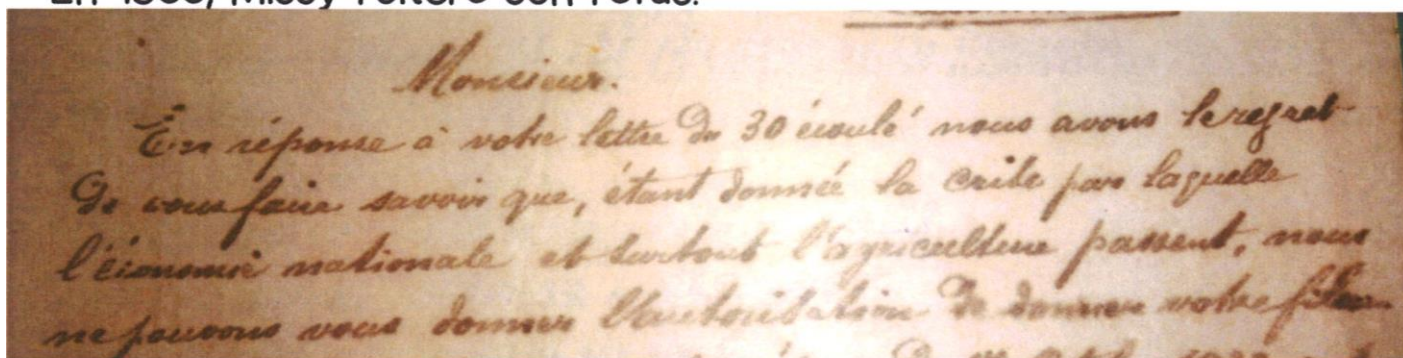 Monsieur.
En réponse à votre lettre du 30 écoulé nous avons le regret
de vous faire savoir que, étant donnée la crise par laquelle
l'économie nationale et surtout l'agriculture passent, nous
ne pouvons vous donner l'autorisation de donner votre